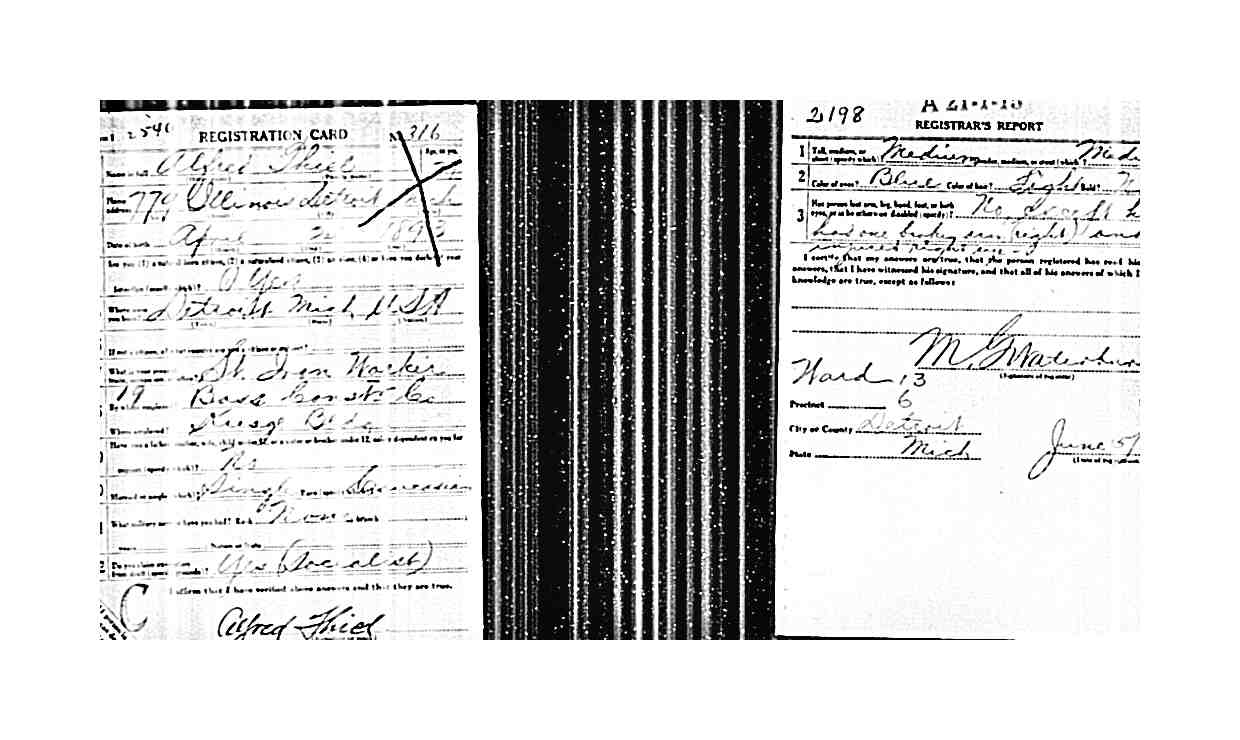 2540 REGISTRATION CARD No 316
Name in full Alfred Thiel
Home address 779 Illinois Detroit Mich
Date of birth April 1893
Are you (1) a natural born citizen, (2) a naturalized citizen, (3) an alien, (4) or have you declared your
intention (specify which)? Yes
Where were you born? Detroit Mich U.S.A
If not a citizen, of what country are you a citizen or subject?
What is your present St. Iron Worker
19
By whom employed? Bass Const Co
Where employed? Kresge Bldg
Have you a father, mother, wife, child under 12, or a sister or brother under 12, solely dependent on you for
support (specify which)? No
Married or single (which)? Single Race (specify which)? Caucasian
What military service have you had? Rank None branch
years Nation or State
Do you claim exemption from draft (specify grounds)? Yes (Socialist)
I affirm that I have verified above answers and that they are true.
Alfred Thiel
2198
REGISTRAR'S REPORT
1 Tall, medium, or short (specify which)? Medium Slender, medium, or stout (which)? Medi
2 Color of eyes? Blue Color of hair? Light Bald? N
3 Has person lost arm, leg, hand, foot, or both eyes, or is he otherwise disabled (specify)? No
has one broken arm (right) and
injured right
I certify that my answers are true, that the person registered has read his
answers, that I have witnessed his signature, and that all of his answers of which I
knowledge are true, except as follows:
M. G. Waterbur
(Signature of registrar)
Ward 13
Precinct 6
City or County Detroit
State Mich
June 5/
(Date of registration)